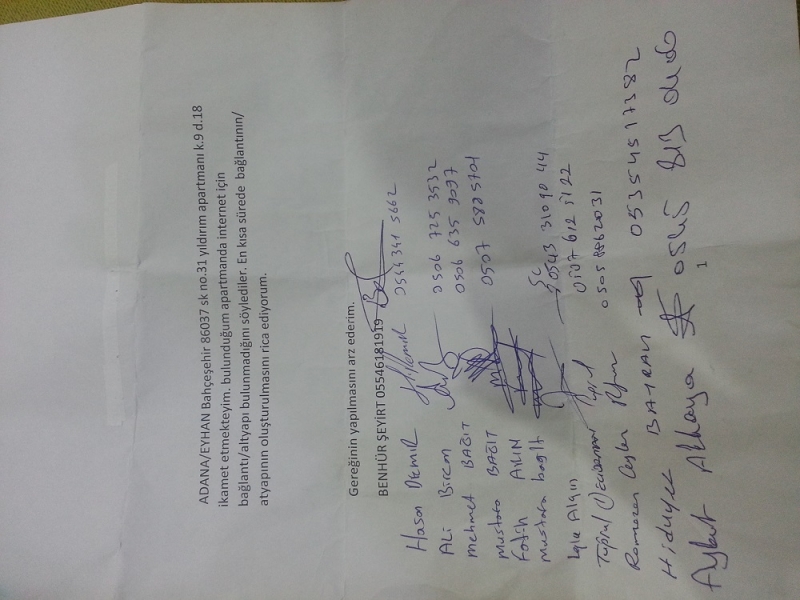 ADANA/EYHAN Bahçeşehir 86037 sk no.31 yıldırım apartmanı k.9 d.18
ikamet etmekteyim. bulunduğum apartmanda internet için
bağlantı/altyapı bulunmadığnı söylediler. En kısa sürede bağlantının/
atyapının oluşturulmasını rica ediyorum.
Gereğinin yapılmasını arz ederim.
BENHÜR ŞEYİRT 05546181919
Hasan Demir 0544 341 5662
Ali 0506 725 3532
Mehmet BAĞIT 0506 635 9097
Mustafa BAĞIT 0507
Fatih AKIN
Mustafa bağıt 0543 310 90 44
Lale Algın 612
Tuğrul
Ramazan
Hidayet BAYRAM 0535 451 73 82
Aykut Akkaya